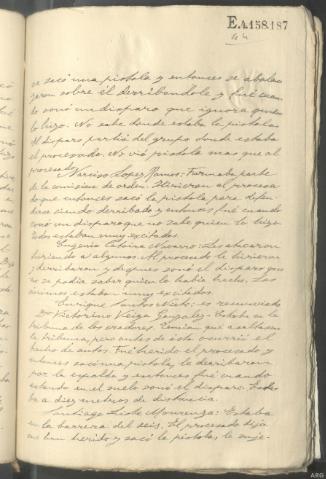 E.A.158.187
se sacó una pistola y entonces se abalan
zaron sobre él derribandole y fué cuan
do sonó un disparo que ignora quien
lo hizo. No sabe donde estaba la pistola.
El disparo partió del grupo donde estaba
el procesado. No vió pistola mas que al
procesado.
Narciso Lopez Ramos: Formaba parte
de la comision de orden. Hirieron al procesa
do que entonces sacó la pistola para defen
derse siendo derribado y entonces fué cuando
sonó un disparo que no sabe quien lo hizo.
Todos estaban muy excitados.
Eugenio Navarro: Les atacaron
hiriendo a algunos. Al procesado le hirieron
y derribaron y despues sonó el disparo que
no se podia saber quien lo habia hecho. Los
animos estaban muy excitados.
Enrique Santos Nieto: es renunciado
Dn Victorino Veiga Gonzalez: Estaba en la
tribuna de los oradores. Temian que asaltasen
la tribuna, pero antes de esto ocurrió el
hecho de autos. Fué herido el procesado y
entonces sacó una pistola, le derribaron
por la espalda y entonces fué cuando
estando en el suelo sonó el disparo. Esta
ba a diez metros de distancia.
Santiago Liste Mourenza: Estaba
en la barrera del seis. El procesado dijo
me han herido y sacó la pistola, le suje-
ARG